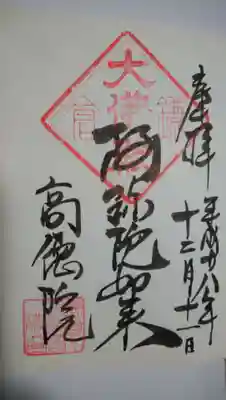 奉拝
平成廿八年
十二月十一日
阿弥陀如来
高徳院
大佛